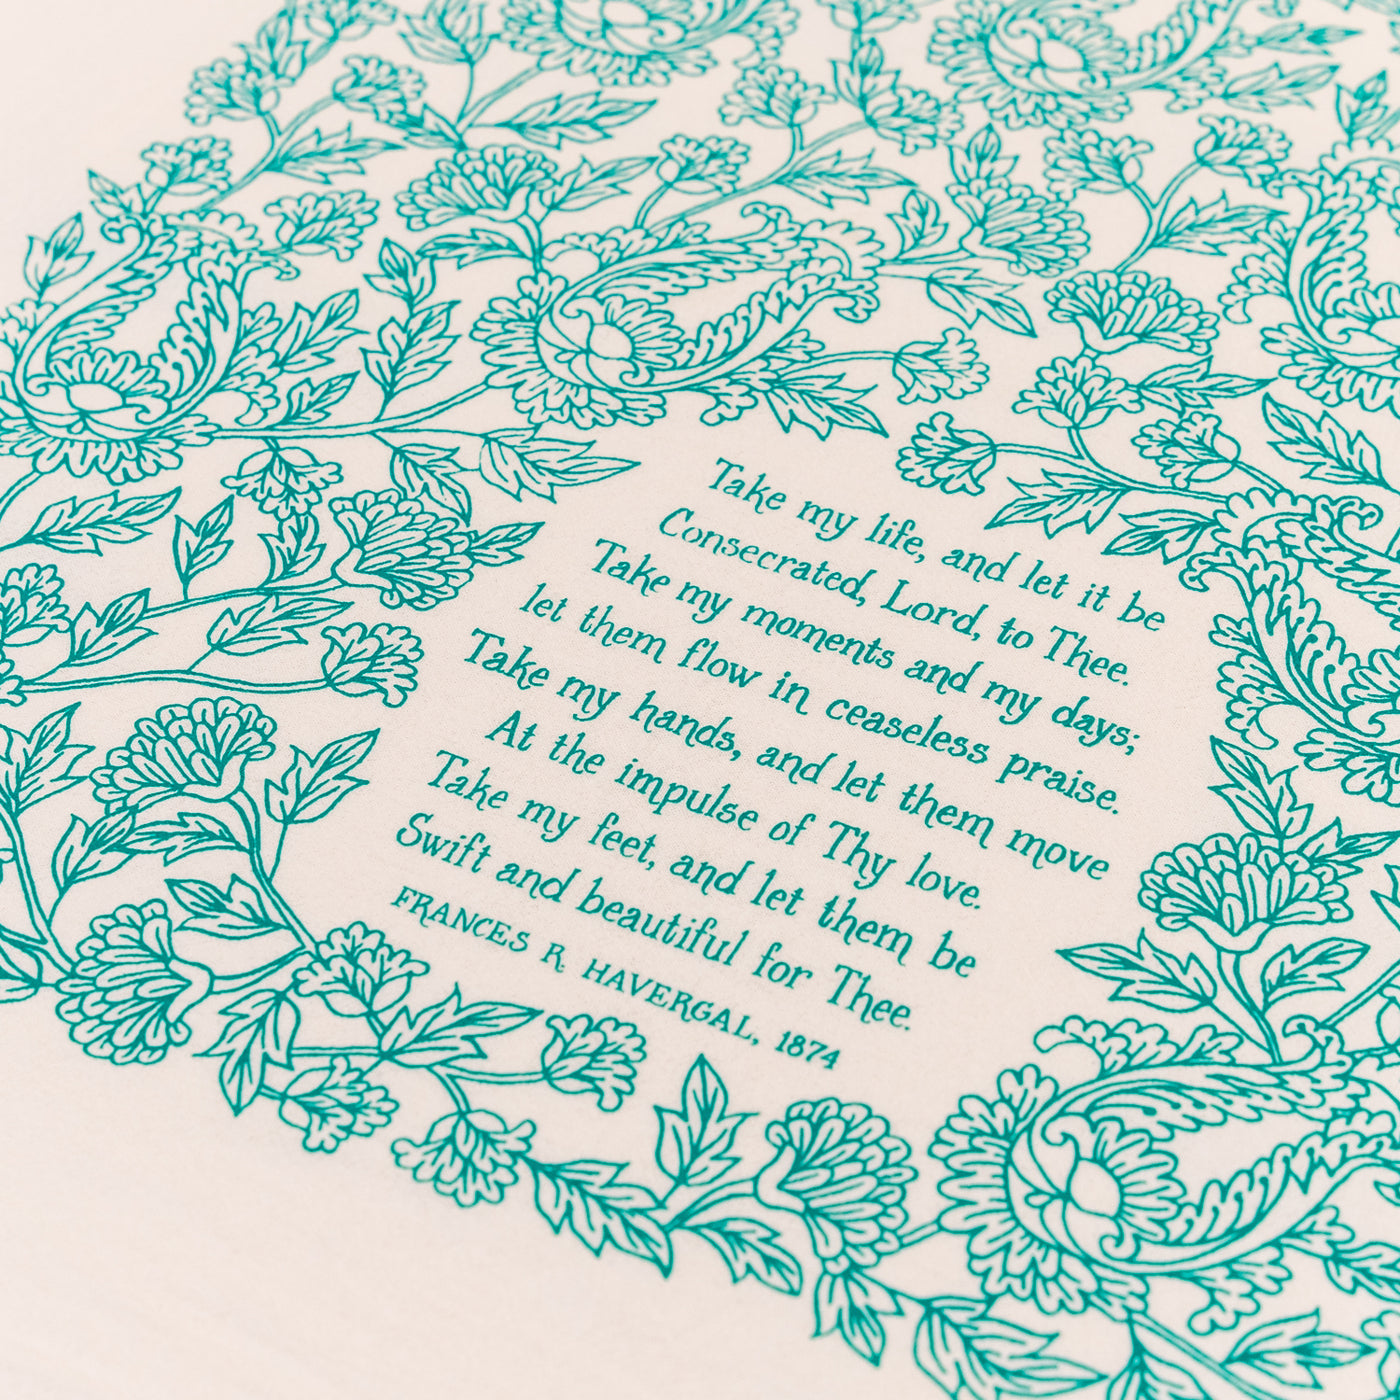 Take my life, and let it be
Consecrated, Lord, to Thee.
Take my moments and my days;
let them flow in ceaseless praise.
Take my hands, and let them move
At the impulse of Thy love.
Take my feet, and let them be
Swift and beautiful for Thee.
FRANCES R. HAVERGAL, 1874